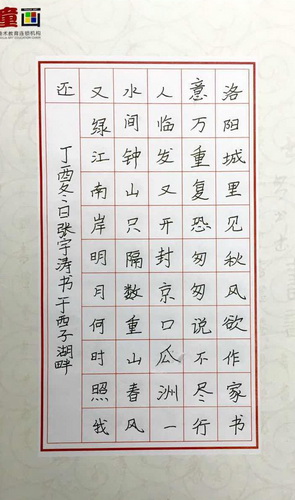 童画
术教育连锁机构
洛阳城里见秋风欲作家书
意万重复恐匆匆说不尽行
人临发又开封京口瓜洲一
水间钟山只隔数重山春风
又绿江南岸明月何时照我
还
丁酉冬日张宇涛书于西子湖畔